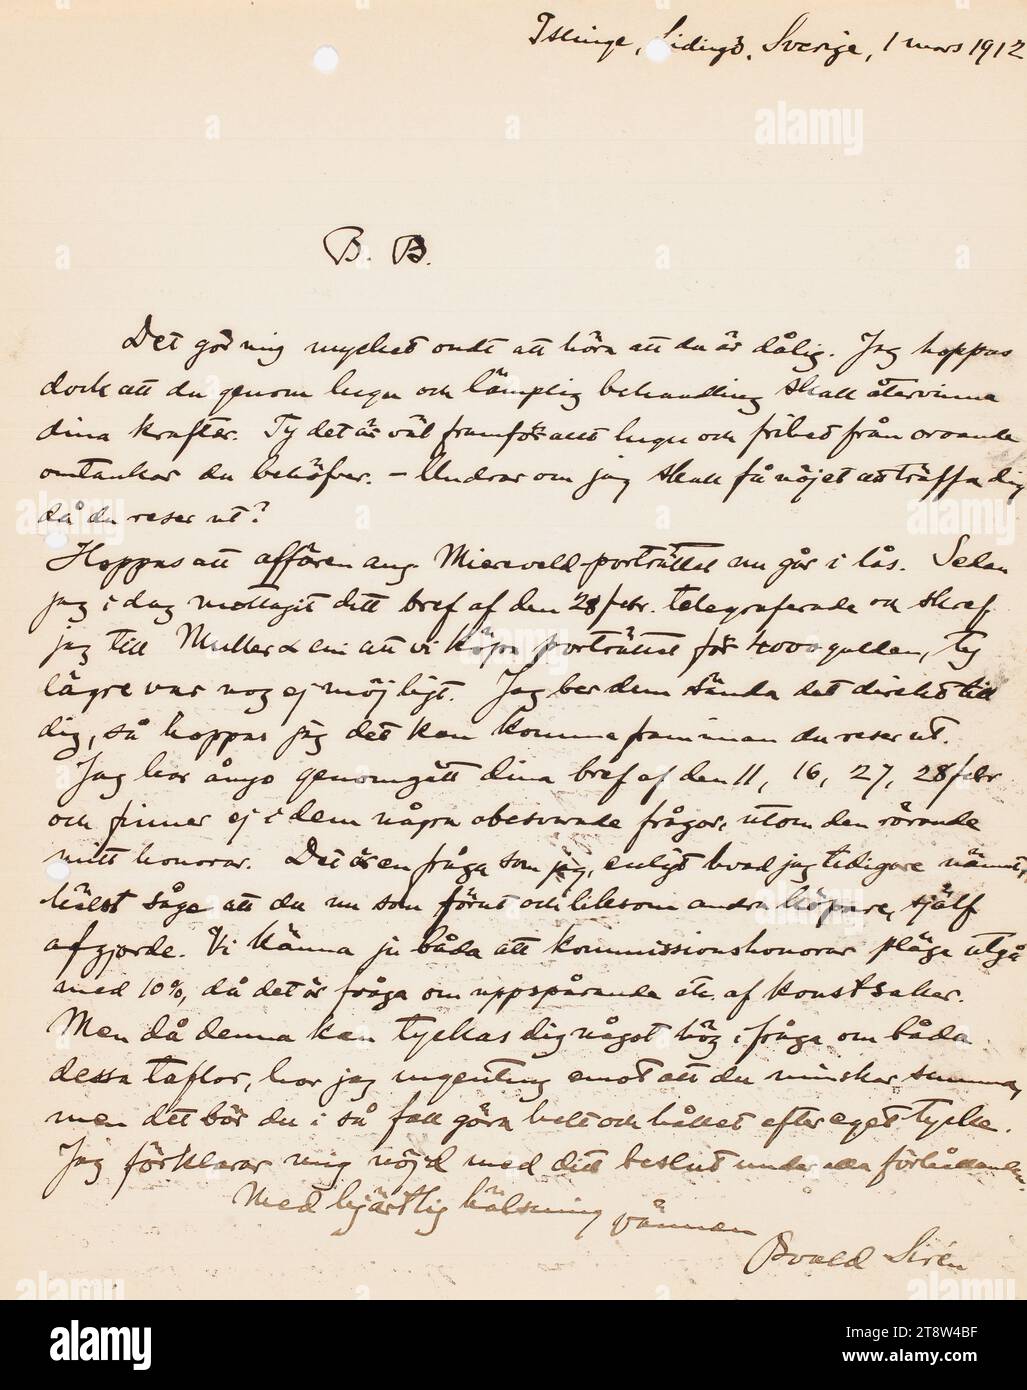 Islinge, Lidingö, Sverige, 1 mars 1912
B. B.
Det gör mig mycket ondt att höra att du är dålig. Jag hoppas
dock att du genom lugn och lämplig behandling skall återvinna
dina krafter. Ty det är väl framför allt lugn och frihet från oroande
omtankar du behöfver. – Undrar om jag skall få nöjet att träffa dig
då du reser ut?
Hoppas att affären ang. Miereveld-porträttet nu går i lås. Sedan
jag i dag mottagit ditt bref af den 28 febr. telegraferade och skref
jag till Muller & em att vi köpa porträttet för 4000 gulden, ty
lägre var nog ej möjligt. Jag ber dem sända det direkt till
dig, så hoppas jag det kan komma fram innan du reser ut.
Jag har ånyo genomgått dina bref af den 11, 16, 27, 28 febr
och finner ej i dem några obesvarade frågor, utom den rörande
mitt honorar. Det är en fråga som jag, enligt hvad jag tidigare nämnt,
hälst såge att du nu som förut och liksom andra köpare, själf
afgjorde. Vi känna ju båda att kommissionshonorar pläga utgå
med 10%, då det är fråga om uppspårande etc. af konstsaker.
Men då denna kan tyckas dig något hög i fråga om båda
dessa taflor, har jag ingenting emot att du minskar summan,
men det bör du i så fall göra helt och hållet efter eget tycke.
Jag förklarar mig nöjd med ditt beslut under alla förhållanden.
Med hjärtlig hälsning vännen
Osvald Sirén
alamy
Image ID: 2T8W4BF
www.alamy.com